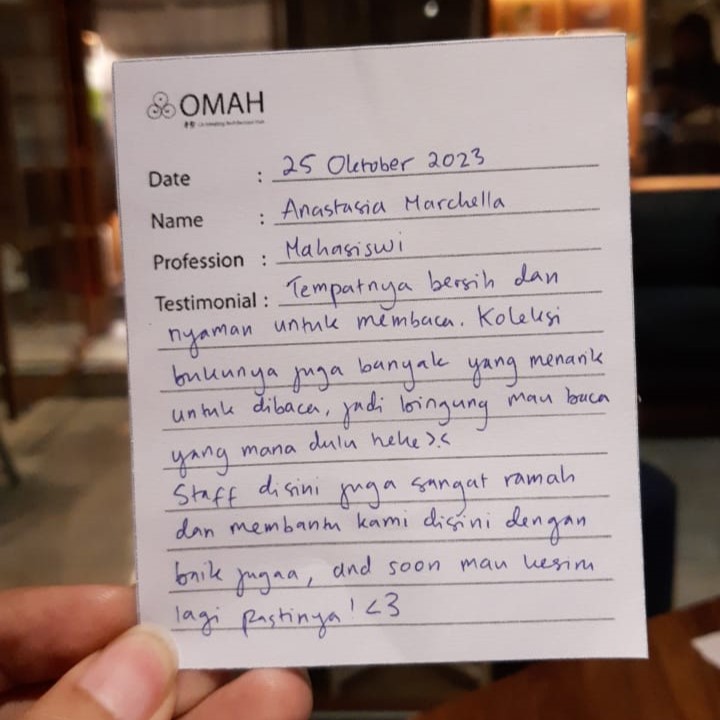 OMAH
Date : 25 Oktober 2023
Name : Anastasia Marchella
Profession : Mahasiswi
Testimonial : Tempatnya bersih dan
nyaman untuk membaca. Koleksi
bukunya juga banyak yang menarik
untuk dibaca, jadi bingung mau baca
yang mana dulu hehe >.<
Staff disini juga sangat ramah
dan membantu kami disini dengan
baik jugaa, and soon mau kesini
lagi pastinya! <3